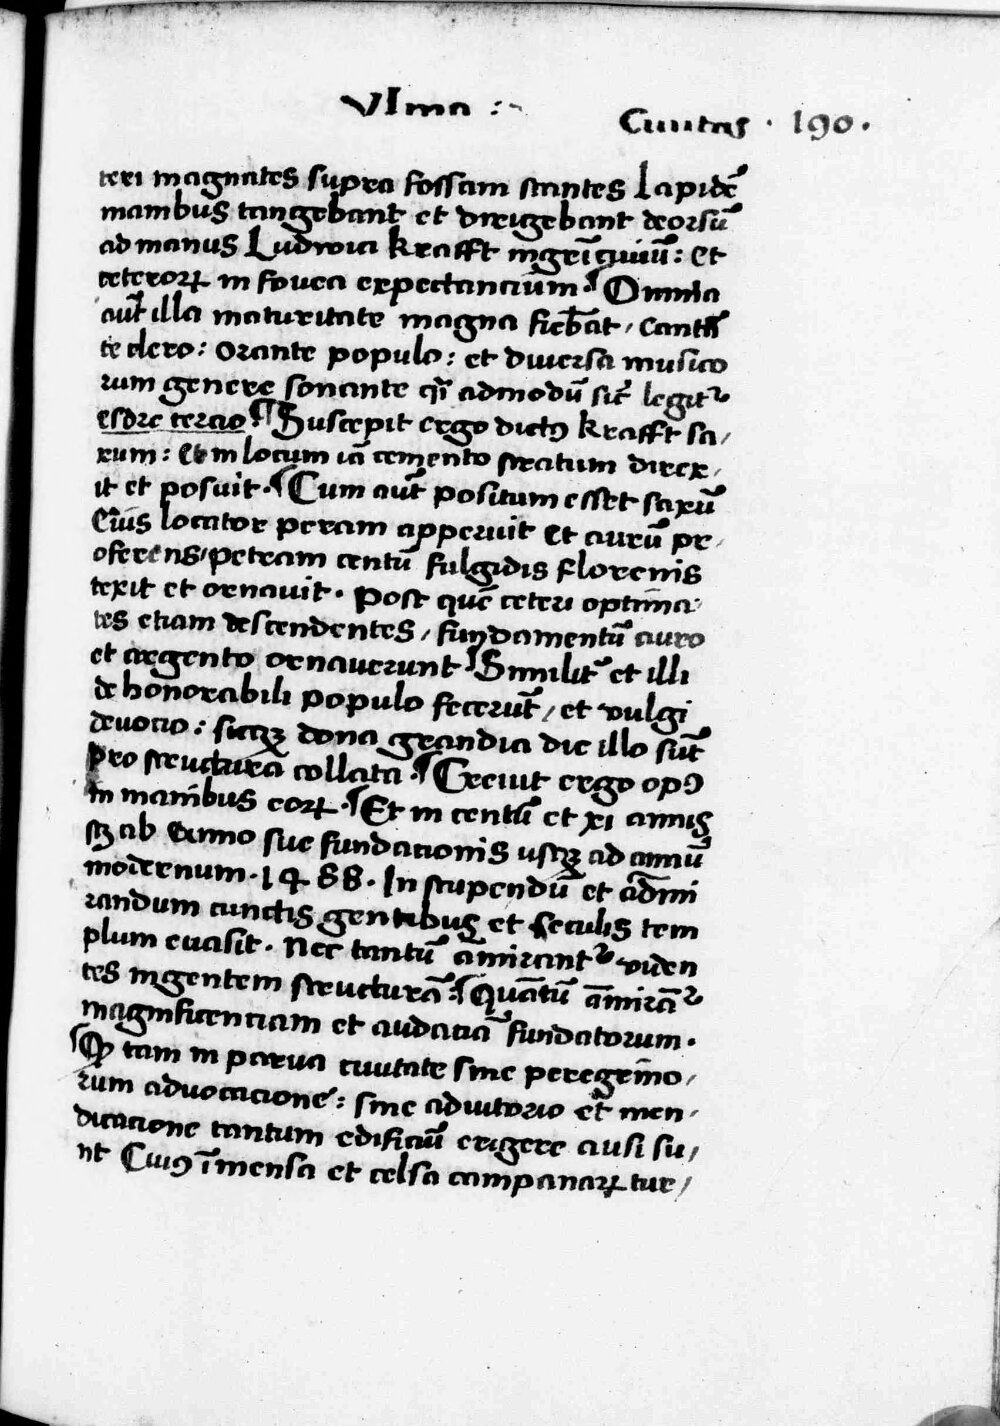 Vlma :~
Ciuitas · 190 ·
teri magnates supra fossam stantes Lapidē
manibus tangebant et dirigebant deorsū
ad manus Ludwici krafft mgr̄i ciuiū : Et
ceterorꝝ in fovea expectancium · ¶ Omnia
aūt illa maturitate magna fiebāt / Cantā
te clero : Orante populo : et diuersa musico
rum genere sonante q̄ admodū sic̄ legitᷣ
esdre tercio · ¶ Suscepit ergo dictꝯ krafft sa /
xum : Et in locum iā cemento stratum direx /
it et posuit · ¶ Cum aūt positum esset saxū
Eius locator peram apperuit Et aurū pr /
oferens / petram centū fulgidis florenis
texit et ornauit · Post quē ceteri optima
tes etiam descendentes / fundamentū auro
et argento ornauerunt ¶ Similitᷣ et illi
de honorabili populo fecerūt / et vulgi
deuocio : sicqꝫ dona grandia die illo sūt
pro structura collata · ¶ Creuit ergo opꝯ
in manibus eorꝝ · ¶ Et in centū et xi annis
sꝫ ab Anno sue fundacionis usqꝫ ad annū
modernum · 1488 · In stupendū et admi
randum cunctis gentibus et seculis tem
plum euasit · Nec tantū amirantᷣ viden
tes ingentem structurā : ¶ Quantū amirāᷣ
magnificenciam et audaciā fundatorum ·
¶ Qꝫ tam in parua ciuitate sine peregrino /
rum aduocacione : sine adiutorio et men /
dicacione tantum edificiū erigere ausi su /
nt Cuiꝯ īmensa et celsa campanarꝝ tur /